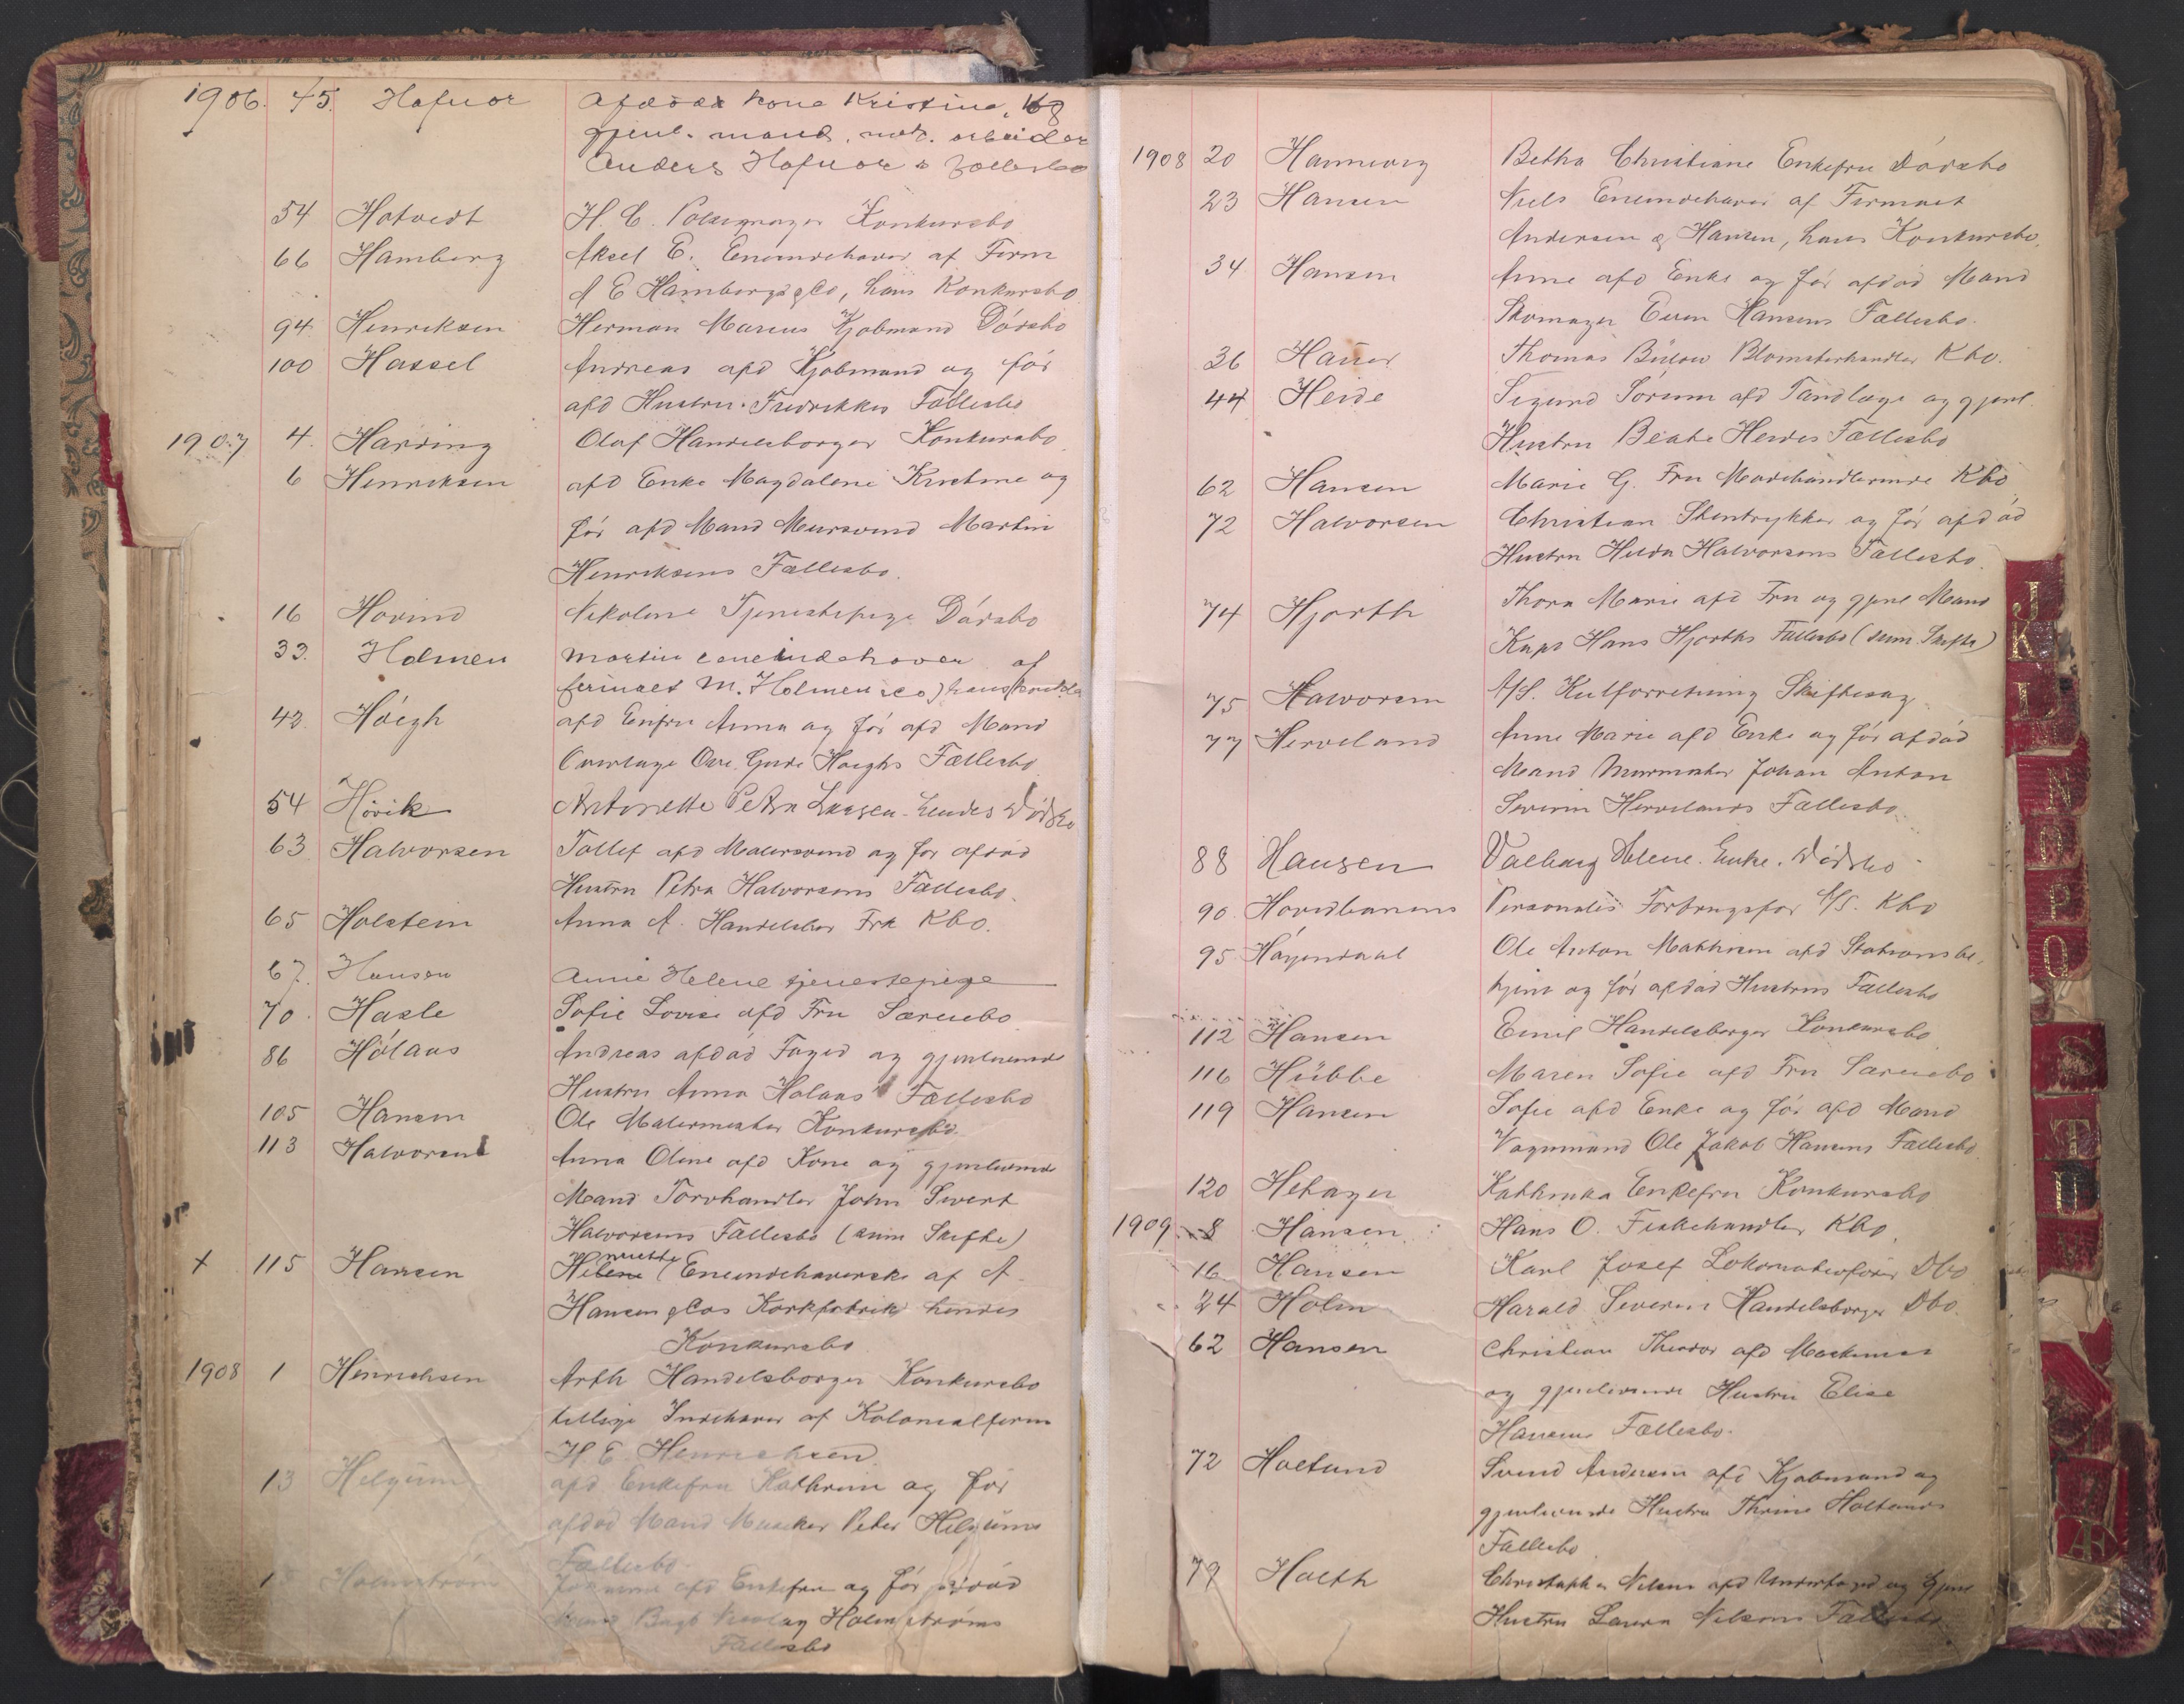 1906. 45. Hafnor afdøde kone Kristine, og
gjenl. mand, mat. arbeider
Anders Hafnor's Fællesbo
54 Hotvedt H. C. Konkursbo
66 Hamberg Aksel E. Eneindehaver af Firm
A E Hambergs & Co, hans Konkursbo
94 Henriksen Herman Marius Kjøbmand Dødsbo
100 Hassel Andreas afd Kjøbmand og før
afd Hustru Fredrikkes Fællesbo
1907 4. Harring Olaf Handelsborger Konkursbo
6 Henriksen afd Enke Magdalene Kristine og
før afd Mand Mursvend Martin
Henriksens Fællesbo.
16 Hovind Nikoline Tjenestepige Dødsbo
33. Holmen Martin eneindehaver af
firmaet M. Holmen & Co) hans
42. Høegh afd Enkfru Anna og før afd Mand
Overlæge Ove Guldb Høeghs Fællesbo
54 Hövik Antonette Petra Larsen hendes Dödsbo
63 Halvorsen Tollef afd Malersvend og før afdød
Hustru Petra Halvorsens Fællesbo.
65 Holstein Anna A. Handelsbor Frk Kbo.
67. Hansen Anne Helene tjenestepige
70 Hasle Sofie Lovise afd Fru Særeiebo
86 Hólaas Andreas afdød Foged og gjenlevende
Hustru Anna Holaas' Fællesbo
105 Hansen Ole Malermester Konkursbo
113 Halvorsen Anna Oline afd Kone og gjenlevende
Mand Torvhandler John Sivert
Halvorsens Fællesbo (sum Skifte)
nriette
x 115 Hansen Helene (Eneindehaverske af A
Hansen & Cos Korkfabrik hendes
Konkursbo
1908 1 Henrichsen Arth Handelsborger Konkursbo
tillige Indehaver af Kolonialfirm
H E Henrichsen
13 Helgum afd Enkefru Kathrine og før
afdød Mand Musiker Peter Helgums
Fællesbo
Holmstrøm afd Enkefru og før afdød
Mand Holmstrøms
Fællesbo
1908 20 Hannevig Betha Christiane Enkefru Dødsbo
23 Hansen Niels Eneindehaver af Firmaet
Andersen & Hansen, hans Konkursbo.
34 Hansen Anne afd Enke og før afdød Mand
Skomager Even Hansens Fællesbo.
36 Hauer Thomas Bülow Blomsterhandler Kbo.
44 Heide Sigurd Sörum afd Tandlæge og gjenl.
Hustru Beate Heides Fællesbo
62 Hansen Marie G. Fru Modehandlerinde Kbo
72 Halvorsen Christian Stentrykker og før afdød
Hustru Hulda Halvorsens Fællesbo.
74 Hjorth Thora Marie afd Fru og gjenl Mand
Kapt Hans Hjorths Fællesbo (sum. Skifte)
75 Halvorsen A/S. Kulforretning Skiftesag
77 Herveland Anne Marie afd Enke og før afdød
Mand Murmester Johan Anton
Severin Hervelands Fællesbo.
88 Hansen Valborg Helene. Enke. Dødsbo
90. Hovedbanens Personales Forbrugsfor A/S. Kbo
95 Høyendaal Ole Anton Mathisen afd Stationsbe.
tjent og før afdød Hustrus Fællesbo
112 Hansen Emil Handelsborger Konkursbo
116 Hübbe Maren Sofie afd Fru Særeiebo
119 Hansen Sofie afd Enke og før afd Mand
Vognmand Ole Jakob Hansens Fællesbo.
120 Hetager Kathinka Enkefru Konkursbo
1909 8 Hansen Hans O. Fiskehandler Kbo.
16 Hansen Karl Josef Lokomotivfører Dbo
24 Holm Harald Severin Handelsborger Dbo.
62 Hansen Christian Theodor afd Maskinist
og gjenlevende Hustru Elise
Hansens Fællesbo.
72 Holtund Svend Andersen afd Kjøbmand og
gjenlevende Hustru Thrine Holtunds
Fællesbo
79 Holth Christopher Nilsen afd Underfoged og gjenl
Hustru Laura Nilsens Fællesbo
J
K
L
N
P
O
S
T
U
Æ